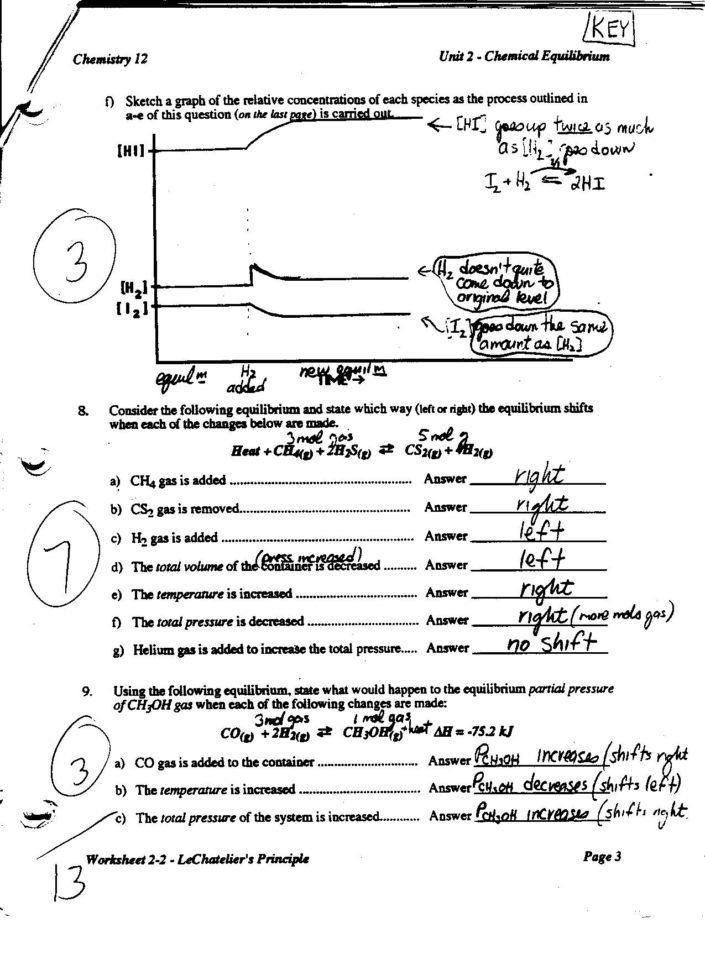 KEY
Chemistry 12
Unit 2 - Chemical Equilibrium
f) Sketch a graph of the relative concentrations of each species as the process outlined in
a-e of this question (on the last page) is carried out.
← [HI] goes up twice as much
as [H₂] goes down
I₂ + H₂ ⇌ 2HI
[HI]
3
[H₂]
[I₂]
← H₂ doesn't quite
come down to
original level
[I₂] goes down the same
amount as [H₂]
equil m H₂ added new equil m
TIME →
8. Consider the following equilibrium and state which way (left or right) the equilibrium shifts
when each of the changes below are made.
3 mol gas 5 mol g
Heat + CH₄(g) + 2H₂S(g) ⇄ CS₂(g) + 4H₂(g)
a) CH₄ gas is added ........ Answer right
b) CS₂ gas is removed........ Answer right
c) H₂ gas is added ........ Answer left
(press increased)
d) The total volume of the container is decreased .......... Answer left
7
e) The temperature is increased ........ Answer right
f) The total pressure is decreased ........ Answer right (more mols gas)
g) Helium gas is added to increase the total pressure..... Answer no shift
9. Using the following equilibrium, state what would happen to the equilibrium partial pressure
of CH₃OH gas when each of the following changes are made:
3 mol gas 1 mol gas
CO(g) + 2H₂(g) ⇄ CH₃OH(g) + heat ΔH = -75.2 kJ
3
a) CO gas is added to the container ........ Answer PCH₃OH increases (shifts right
b) The temperature is increased ........ Answer PCH₃OH decreases (shifts left)
c) The total pressure of the system is increased............ Answer PCH₃OH increases (shifts right.
Worksheet 2-2 - LeChatelier's Principle
Page 3
13